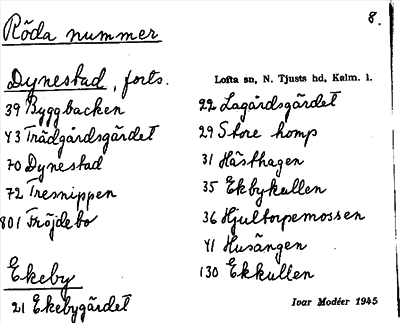 Röda nummer
8.
Dynestad, forts.
39 Byggbacken
43 Trädgårdsgärdet
70 Dynestad
72 Tresnippen
801 Fröjdebo
Ekeby
21 Ekebygärdet
Lofta sn, N. Tjusts hd, Kalm. l.
22 Lagårdsgärdet
29 Store homp
31 Hästhagen
35 Ekbykullen
36 Hjultorpemossen
41 Husängen
130 Ekkullen
Ivar Modéer 1945